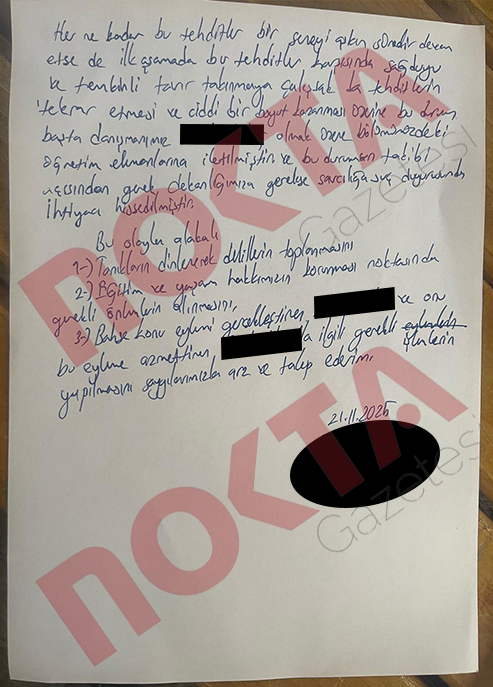 Her ne kadar bu tehditler bir seneyi aşkın süredir devam
etse de ilk aşamada bu tehditler karşısında sağduyu
ve temkinli tavır takınmaya çalışsak da tehditlerin
tekrar etmesi ve ciddi bir boyut kazanması üzerine bu durum
başta danışmanımız olmak üzere bölümümüzdeki
öğretim elemanlarına iletilmiştir ve bu durumun takibi
açısından gerek dekanlığımıza gerekse savcılığa suç duyurusunda
ihtiyacı hissedilmiştir.
Bu olayla alakalı
1-) Tanıkların dinlenerek delillerin toplanmasını
2-) Eğitim ve yaşam hakkımızın korunması noktasında
gerekli önlemlerin alınmasını,
3-) Bahse konu eylemi gerçekleştiren, ve onu
bu eyleme azmettiren ilgili gerekli işlemlerin
yapılmasını saygılarımızla arz ve talep ederim.
21.11.2025
NOKTA
Gazetesi
NOKTA
Gazetesi